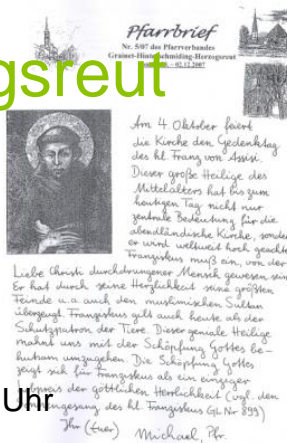 Pfarrbrief
Nr. 5/07 des Pfarrverbandes
Grainet-Hinterschmiding-Herzogsreut
– 02.12.2007
gsreut
Am 4. Oktober feiert
die Kirche den Gedenktag
des hl. Franz von Assisi.
Dieser große Heilige des
Mittelalters hat bis zum
heutigen Tag nicht nur
zentrale Bedeutung für die
abendländische Kirche, sondern
er wird weltweit hoch geachtet.
Franziskus muß ein, von der
Liebe Christi durchdrungener Mensch gewesen sein.
Er hat durch seine Herzlichkeit seine größten
Feinde u.a. auch den muslimischen Sultan
überzeugt. Franziskus gilt auch heute als der
Schutzpatron der Tiere. Dieser geniale Heilige
mahnt uns mit der Schöpfung Gottes be-
hutsam umzugehen. Die Schöpfung Gottes
zeigt sich für Franziskus als ein einziger
Lobpreis der göttlichen Herrlichkeit (vgl. den
Sonnengesang des hl. Franziskus GL Nr 899)
Uhr
Ihr (Euer) Michael Pfr.